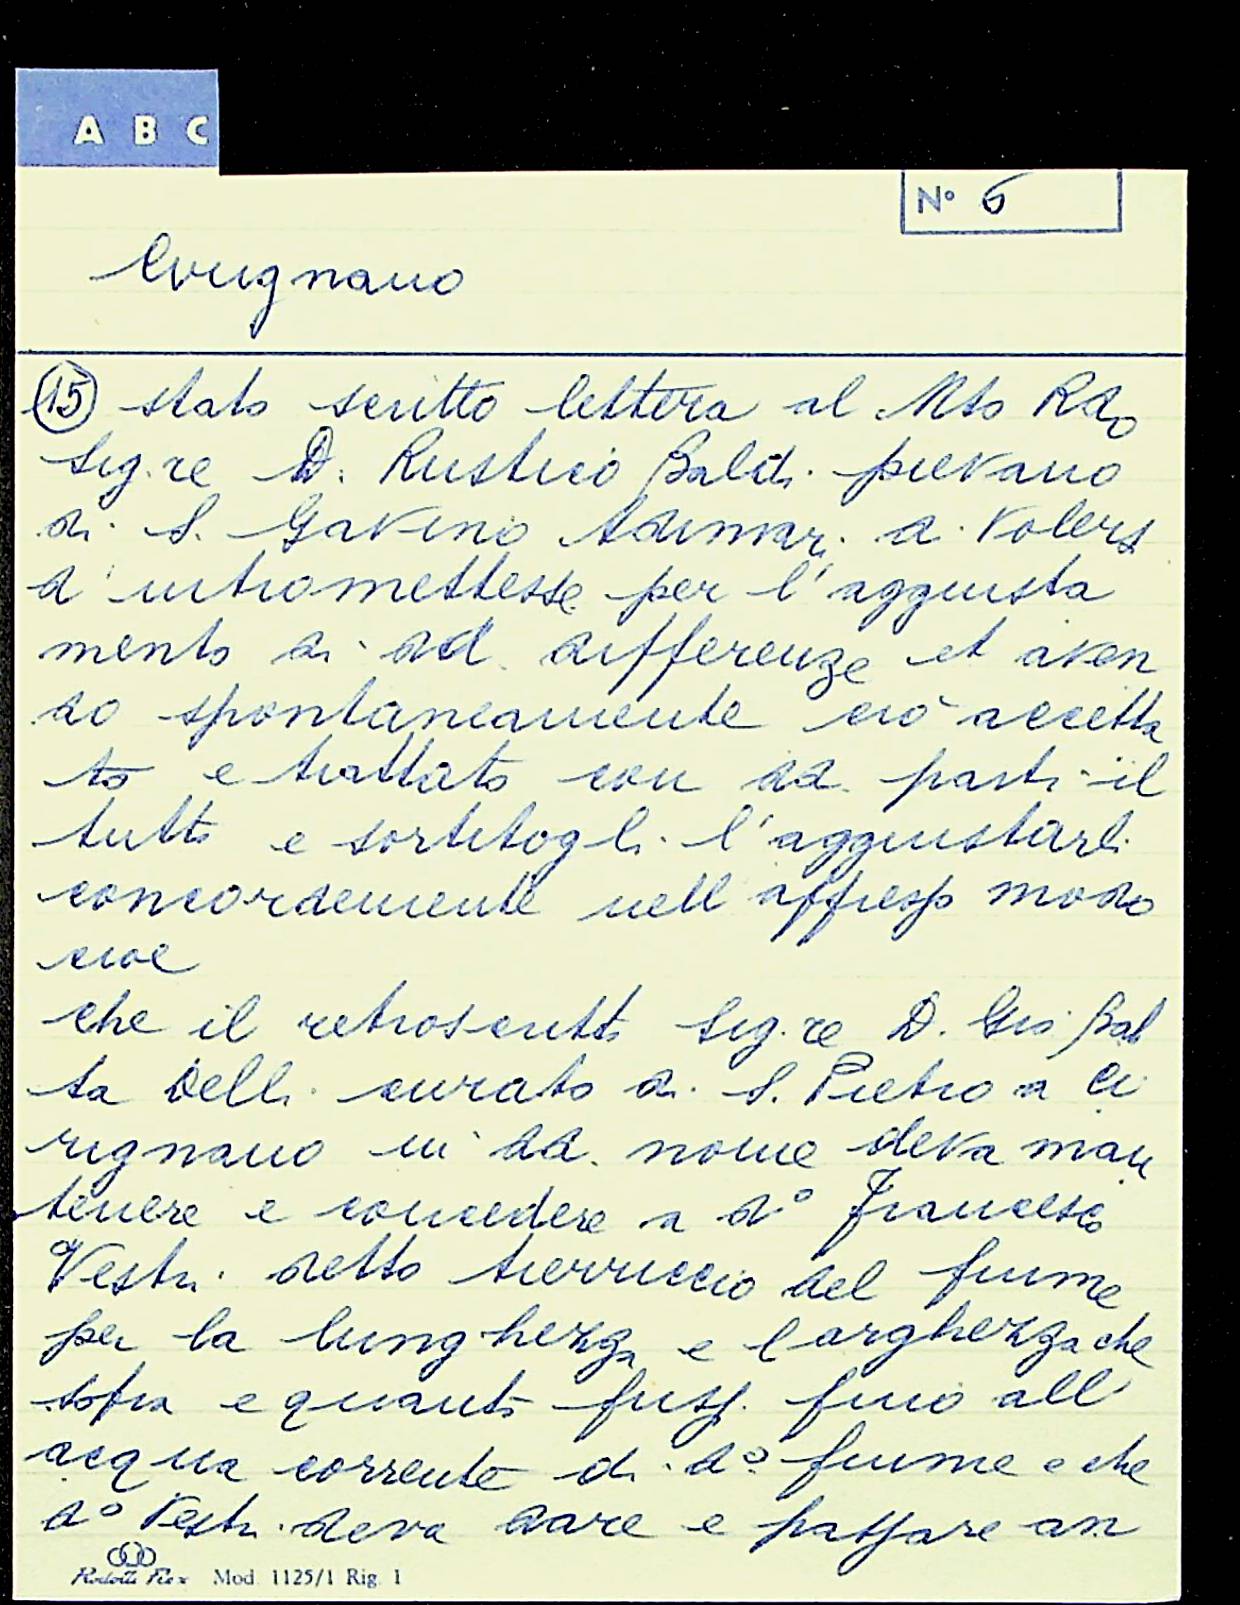 A B C
N° 6
Cirignano
15 stato scritto lettera al Mto Rdo
Sig.re D. Rustico Baldi pievano
di S. Gavino Adimari a volers
d'intromettesse per l'aggiusta
mento di dd. differenze et aven
do spontaneamente ciò accetta
to e trattato con dd. parti il
tutto e sortitogli l'aggiustarli
concordemente nell' modo
cioè
che il retroscritto Sig.re D. Gio Bat
ta Delli curato di S. Pietro a Ci
rignano in dd. nome deva man
tenere e concedere a d° Francesco
Vestri detto del fiume
per la lunghezza e larghezza che
sopra e quanto fuss. fino all'
acqua corrente di d° fiume e che
d° Vestri deva dare e passare an
Mod. 1125/1 Rig. 1